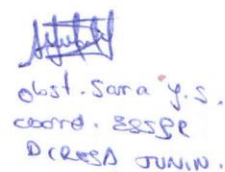 obst. Sara Y.S.
coord. ESSPR
DIRESA JUNIN.